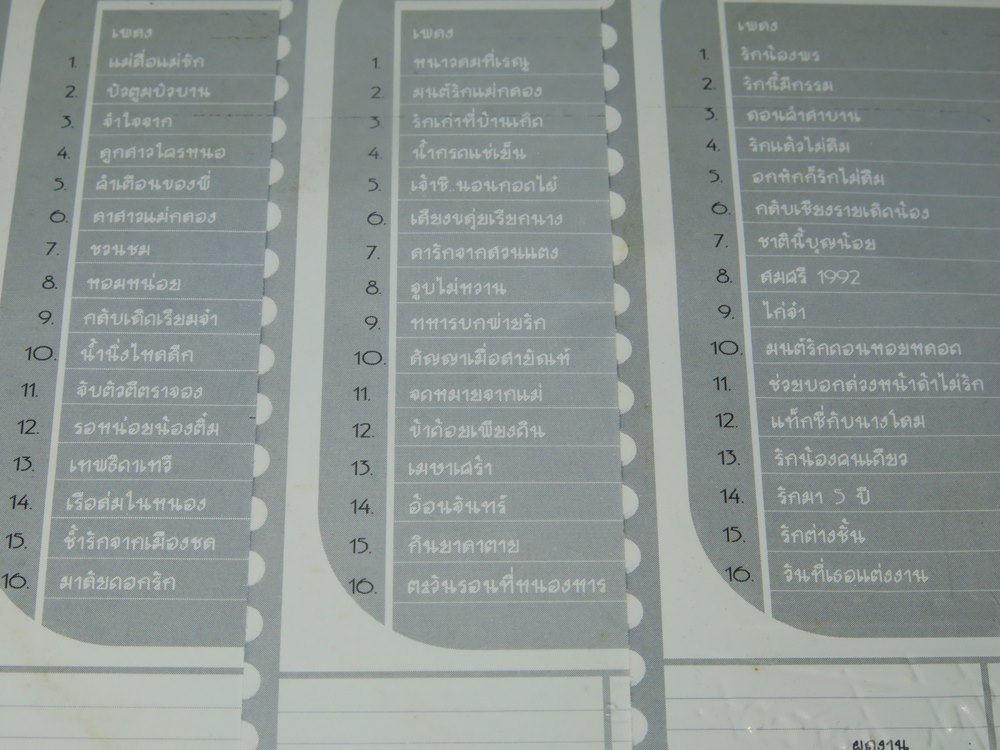 เพลง
1. แม่สื่อแม่รัก
2. บัวตูมบัวบาน
3. จำใจจาก
4. ลูกสาวใครหนอ
5. คำเตือนของพี่
6. ลาสาวแม่กลอง
7. ชวนชม
8. หอมหน่อย
9. กลับเถิดเรียมจ๋า
10. น้ำนิ่งไหลลึก
11. จับตัวตีตราจอง
12. รอหน่อยน้องติ๋ม
13. เทพธิดาเทวี
14. เรือล่มในหนอง
15. ช้ำรักจากเมืองชล
16. มาลัยดอกรัก
เพลง
1. หนาวลมที่เรณู
2. มนต์รักแม่กลอง
3. รักเก่าที่บ้านเกิด
4. น้ำกรดแช่เย็น
5. เจ้าชู้..นอนกอดไผ่
6. เสียงขลุ่ยเรียกนาง
7. ลารักจากสวนแตง
8. จูบไม่หวาน
9. ทหารบกพ่ายรัก
10. สัญญาเมื่อสายัณห์
11. จดหมายจากแม่
12. ข้าด้อยเพียงดิน
13. เมษาเศร้า
14. อ้อนจันทร์
15. กินยาลาตาย
16. ตะวันรอนที่หนองหาร
เพลง
1. รักน้องพร
2. รักนี้มีกรรม
3. ลอนลำลาบาน
4. รักแล้วไม่ลืม
5. อกหักก็รักไม่ลืม
6. กลับเชียงรายเถิดน้อง
7. ชาตินี้บุญน้อย
8. สมศรี 1992
9. ไก่จ๋า
10. มนต์รักดอนหอยหลอด
11. ช่วยบอกด้วงหน้าดำไม่รัก
12. แท็กซี่กับนางโลม
13. รักน้องคนเดียว
14. รักมา 5 ปี
15. รักต่างชั้น
16. วันที่เธอแต่งงาน
ผลงาน